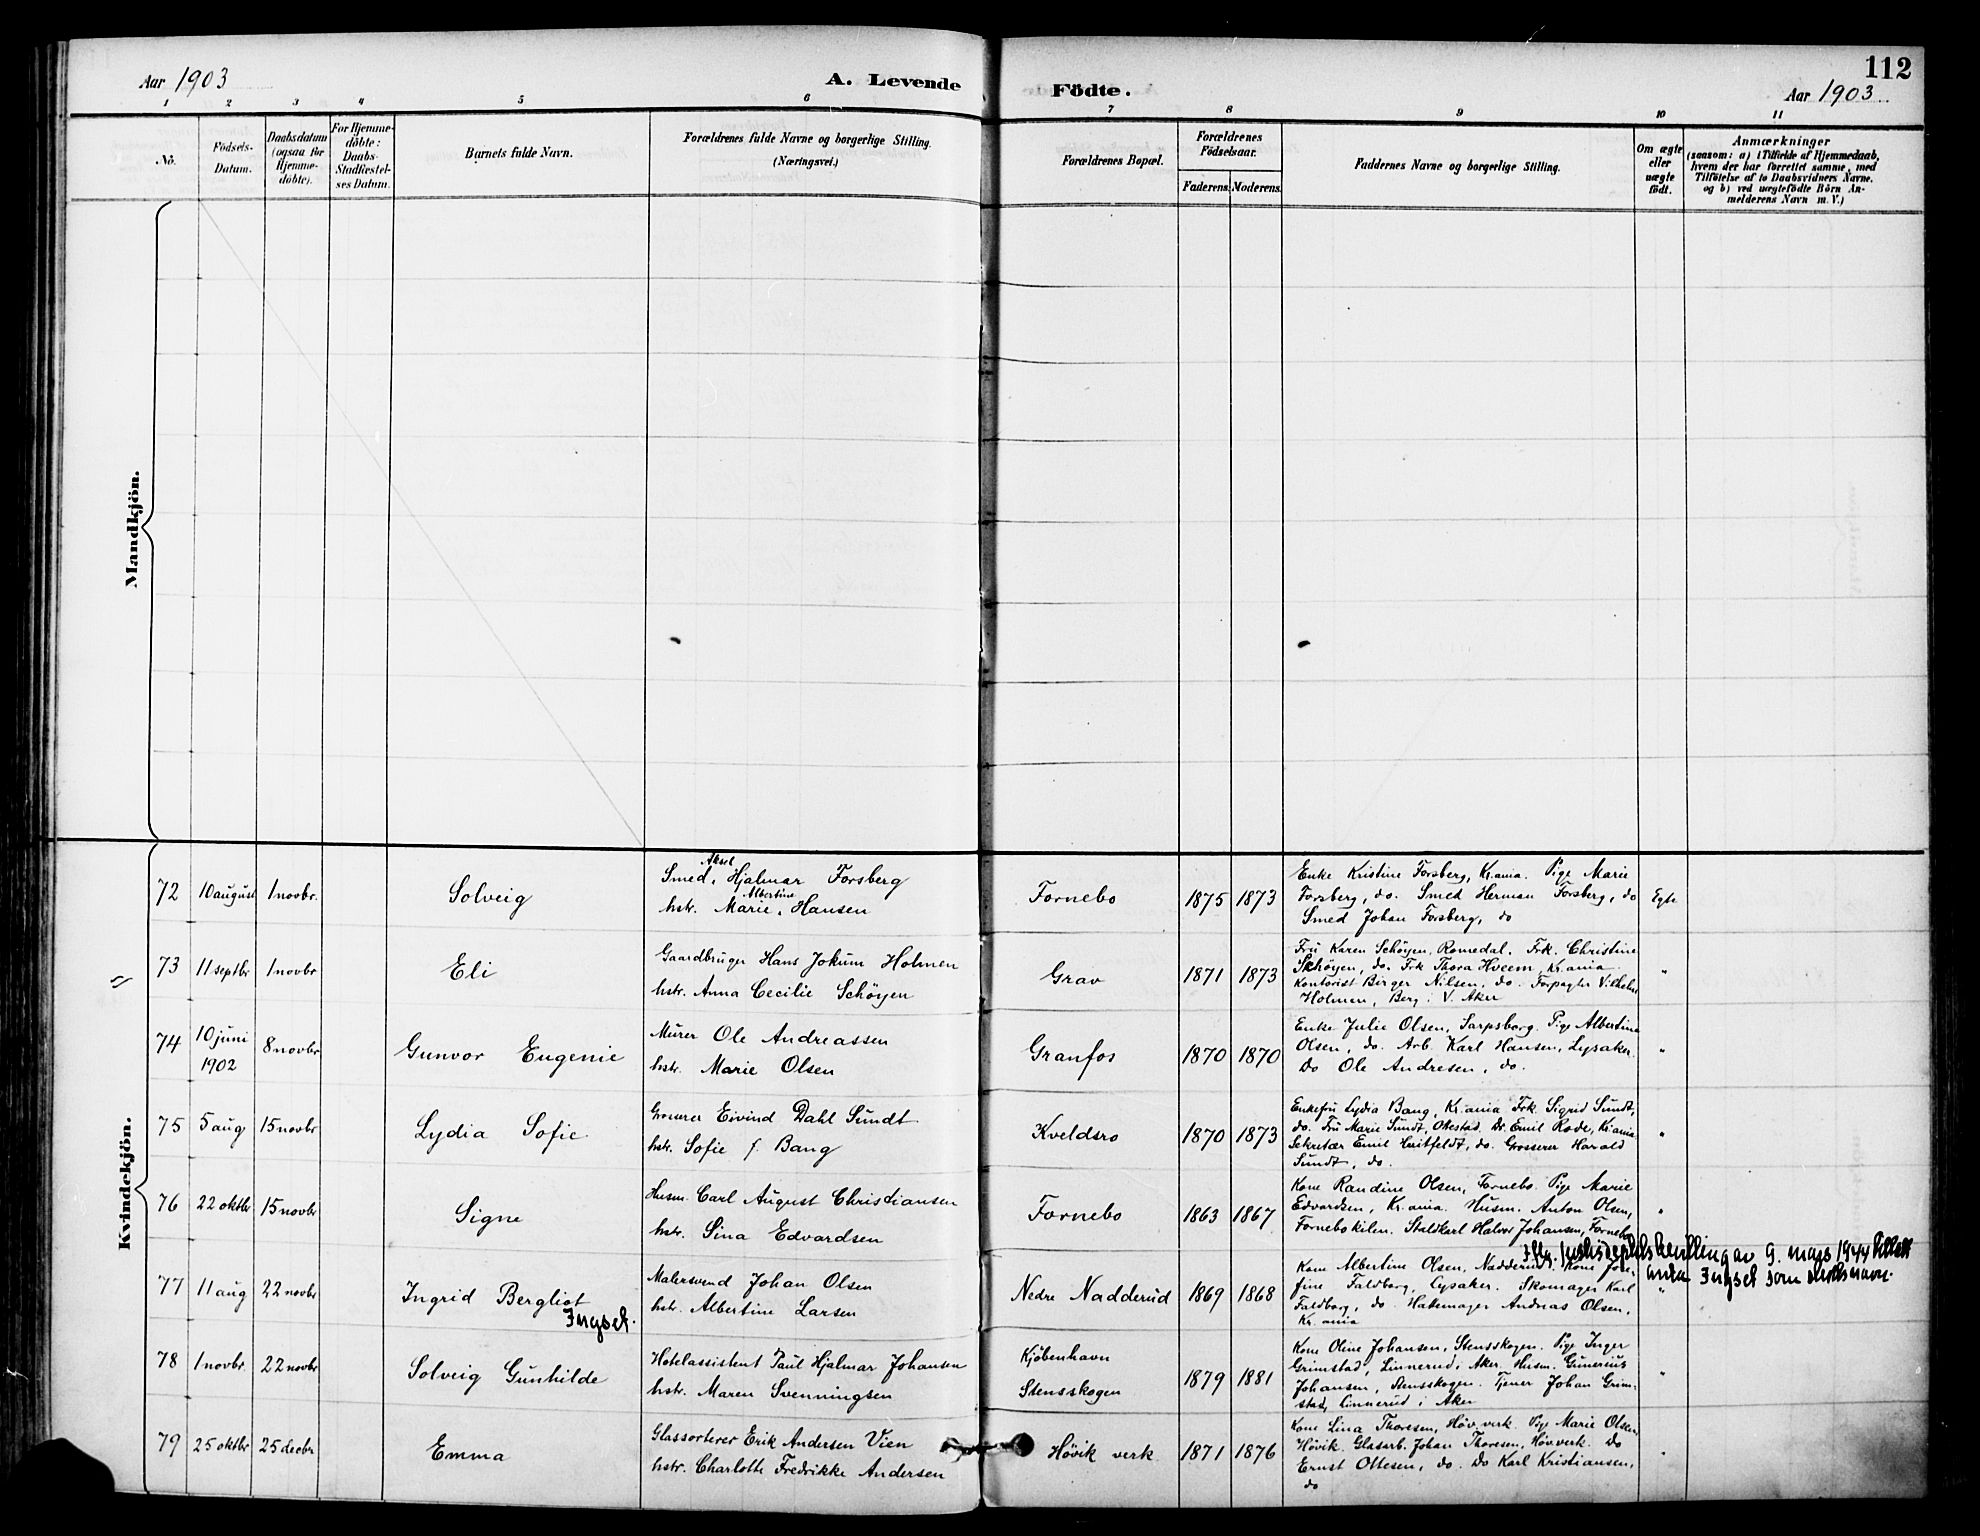 112
Aar 1903
A. Levende
Födte.
Aar 1903
1 2 3 4 5 6 7 8 9 10 11
No.
Födsels-
Datum.
Daabsdatum
(ogsaa for
Hjemme-
döbte).
For Hjemme-
döbte:
Daabs-
Stadfæstel-
ses Datum.
Barnets fulde Navn.
Forældrenes fulde Navne og borgerlige Stilling.
(Næringsvei.)
Forældrenes Bopæl.
Forældrenes
Födselsaar.
Faderens. Moderens.
Faddernes Navne og borgerlige Stilling.
Om ægte
eller
uægte
födt.
Anmærkninger
(saasom: a) i Tilfælde af Hjemmedaab,
hvem der har forrettet samme, med
Tilföielse af to Daabsvidners Navne.
og b) ved uægtefödte Börn An-
melderens Navn m. V.)
Mandkjön.
Kvindekjön.
72 10 august 1 novbr. Solveig
Aksel
Smed, Hjalmar Forsberg
Albertine
hstr. Marie, Hansen
Fornebo 1875 1873
Enke Kristine Forsberg, Kr.ania. Pige Marie
Forsberg, do. Smed Herman Forsberg, do
Smed Johan Forsberg, do
Egte
73 11 septbr 1 novbr Eli
Gaardbruger Hans Jokum Holmen
hstr. Anna Cecilie Schöyen
Grav 1871 1873
Fru Karen Schöyen, Romedal. Frk. Christine
Schöyen, do. Frk Thora Hveem, Kr.ania.
Kontorist Birger Nilsen, do. Forpagter Vilhelm
Holmen, Berg i V. Aker
"
74 10 juni
1902
8 novbr Gunvor Eugenie
Murer Ole Andreassen
hstr. Marie Olsen
Granfos 1870 1870
Enke Julie Olsen, Sarpsborg. Pige Albertine
Olsen, do. Arb. Karl Hansen, Lysaker.
Do Ole Andresen, do.
"
75 5 aug 15 novbr Lydia Sofie
Grosserer Eivind Dahl Sundt
hstr. Sofie f. Bang
Kveldsro 1870 1873
Enkefru Lydia Bang, Kr.ania Frk. Sigrid Sundt,
do. Fru Marie Sundt, Ottestad. Dr. Emil Rode, Kr.ania
Sekretær Emil Huitfeldt, do. Grosserer Harald
Sundt, do.
"
76 22 oktbr 15 novbr Signe
Husm. Carl August Christiansen
hstr. Sina Edvardsen
Fornebo 1863 1867
Kone Randine Olsen, Fornebo. Pige Marie
Edvardsen, Kr.ania. Husm. Anton Olsen,
Fornebokilen. Staldkarl Halvor Johansen, Fornebo
"
77 11 aug 22 novbr Ingrid Bergliot
Ingset.
Malersvend Johan Olsen
hstr. Albertine Larsen
Nedre Nadderud 1869 1868
Kone Albertine Olsen, Nadderud. Kone Jose-
fine Faldborg, Lysaker. Skomager Karl
Faldborg, do. Hattemager Andreas Olsen,
Kr.ania
"
av 9. mars 1944 tillatt
Ingset som slektsnavn.
78 1 novbr. 22 novbr Solveig Gunhilde
Hotelassistent Paul Hjalmar Johansen
hstr. Maren Svenningsen
Kjöbenhavn
Stensskogen
1879 1881
Kone Oline Johansen, Stensskogen. Pige Inger
Grimstad, Linnerud i Aker. Husm. Gunerius
Johansen, Stensskogen. Tjener Johan Grim-
stad, Linnerud i Aker
"
79 25 oktbr 25 decbr Emma
Glassorterer Erik Andersen Vien
hstr. Charlotte Fredrikke Andersen
Hövik verk 1871 1876
Kone Lina Thoresen, Höv. verk. Pige Marie Olsen,
Hövik. Glasarb. Johan Thoresen, Höv. verk. Do
Ernst Ottesen, do. Do Karl Kristiansen,
do
"